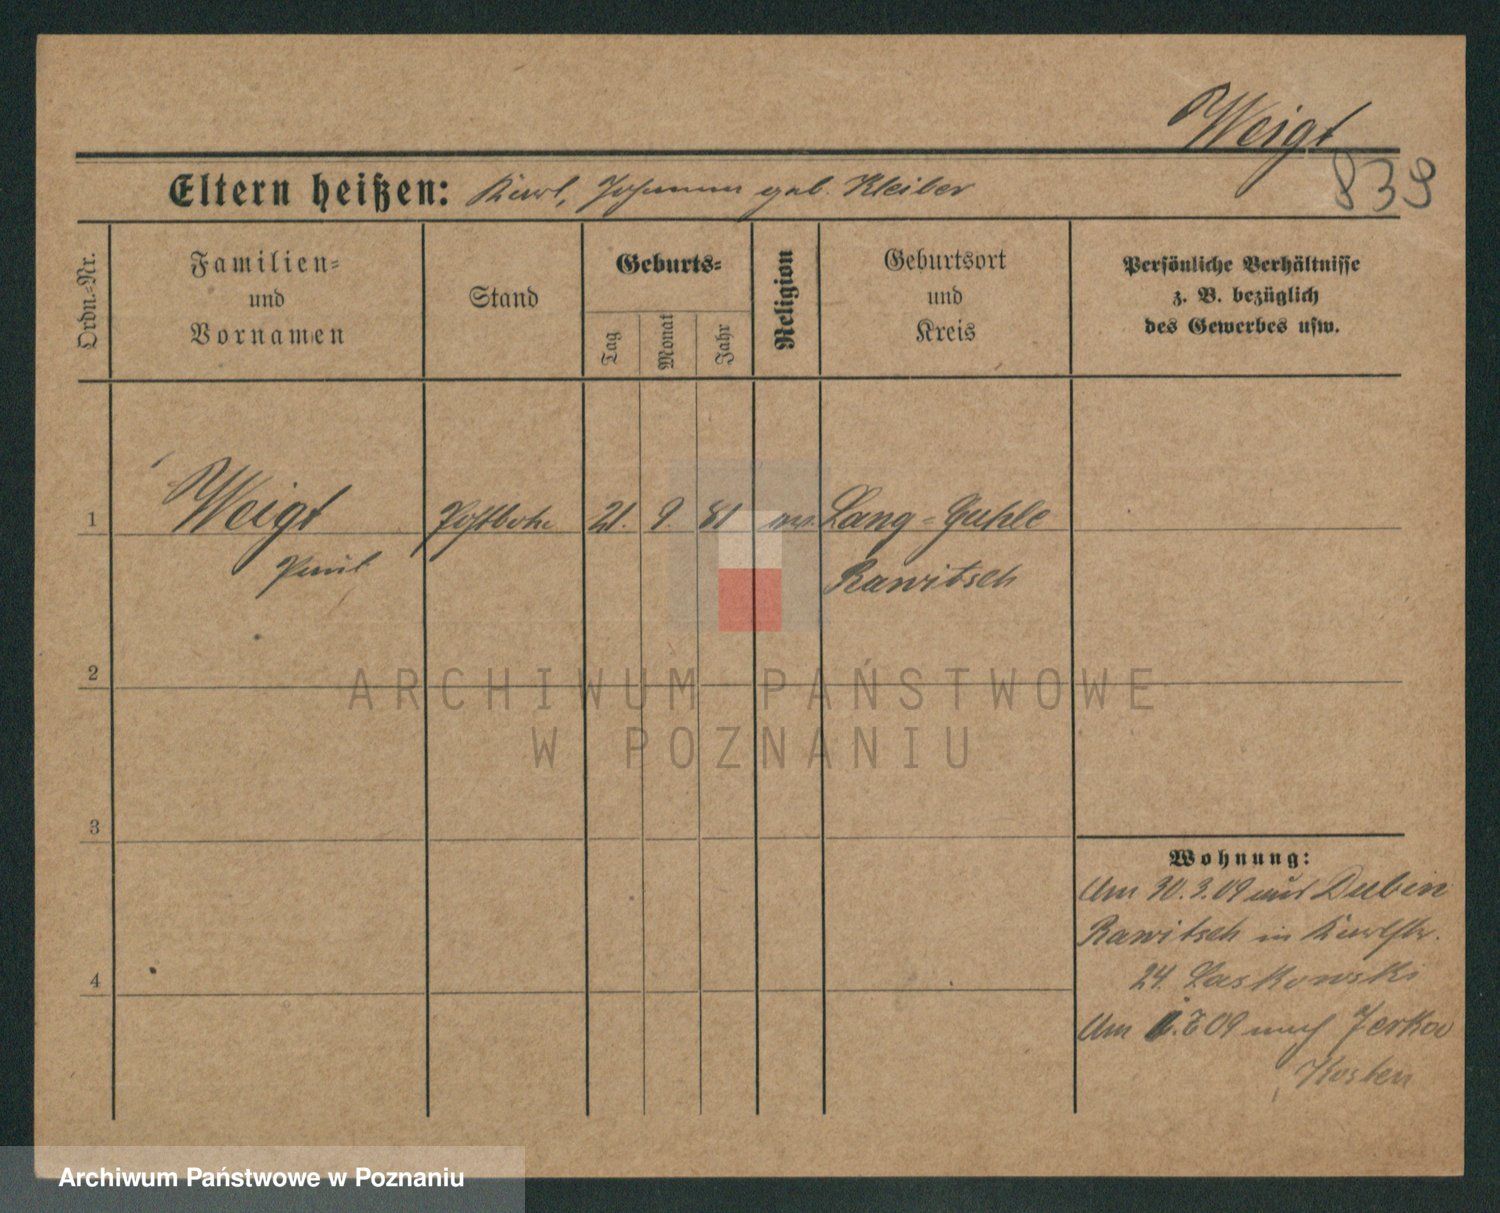 Weigt
839
Eltern heißen: Karl, Johanna geb. Kleiber
Ordn.=Nr.
Familien=
und
Vornamen
Stand
Geburts=
Tag
Monat
Jahr
Religion
Geburtsort
und
Kreis
Persönliche Verhältnisse
z. B. bezüglich
des Gewerbes usw.
1 Weigt Postbote 21. 9. 81 Lang=Guhle
Paul Rawitsch
2
3
4
Wohnung:
Am 30.3.09 aus Dubin
Rawitsch in Karlstr.
24. Laskowski
Am 09 nach Jerka
Kosten
ARCHIWUM PAŃSTWOWE
W POZNANIU
Archiwum Państwowe w Poznaniu